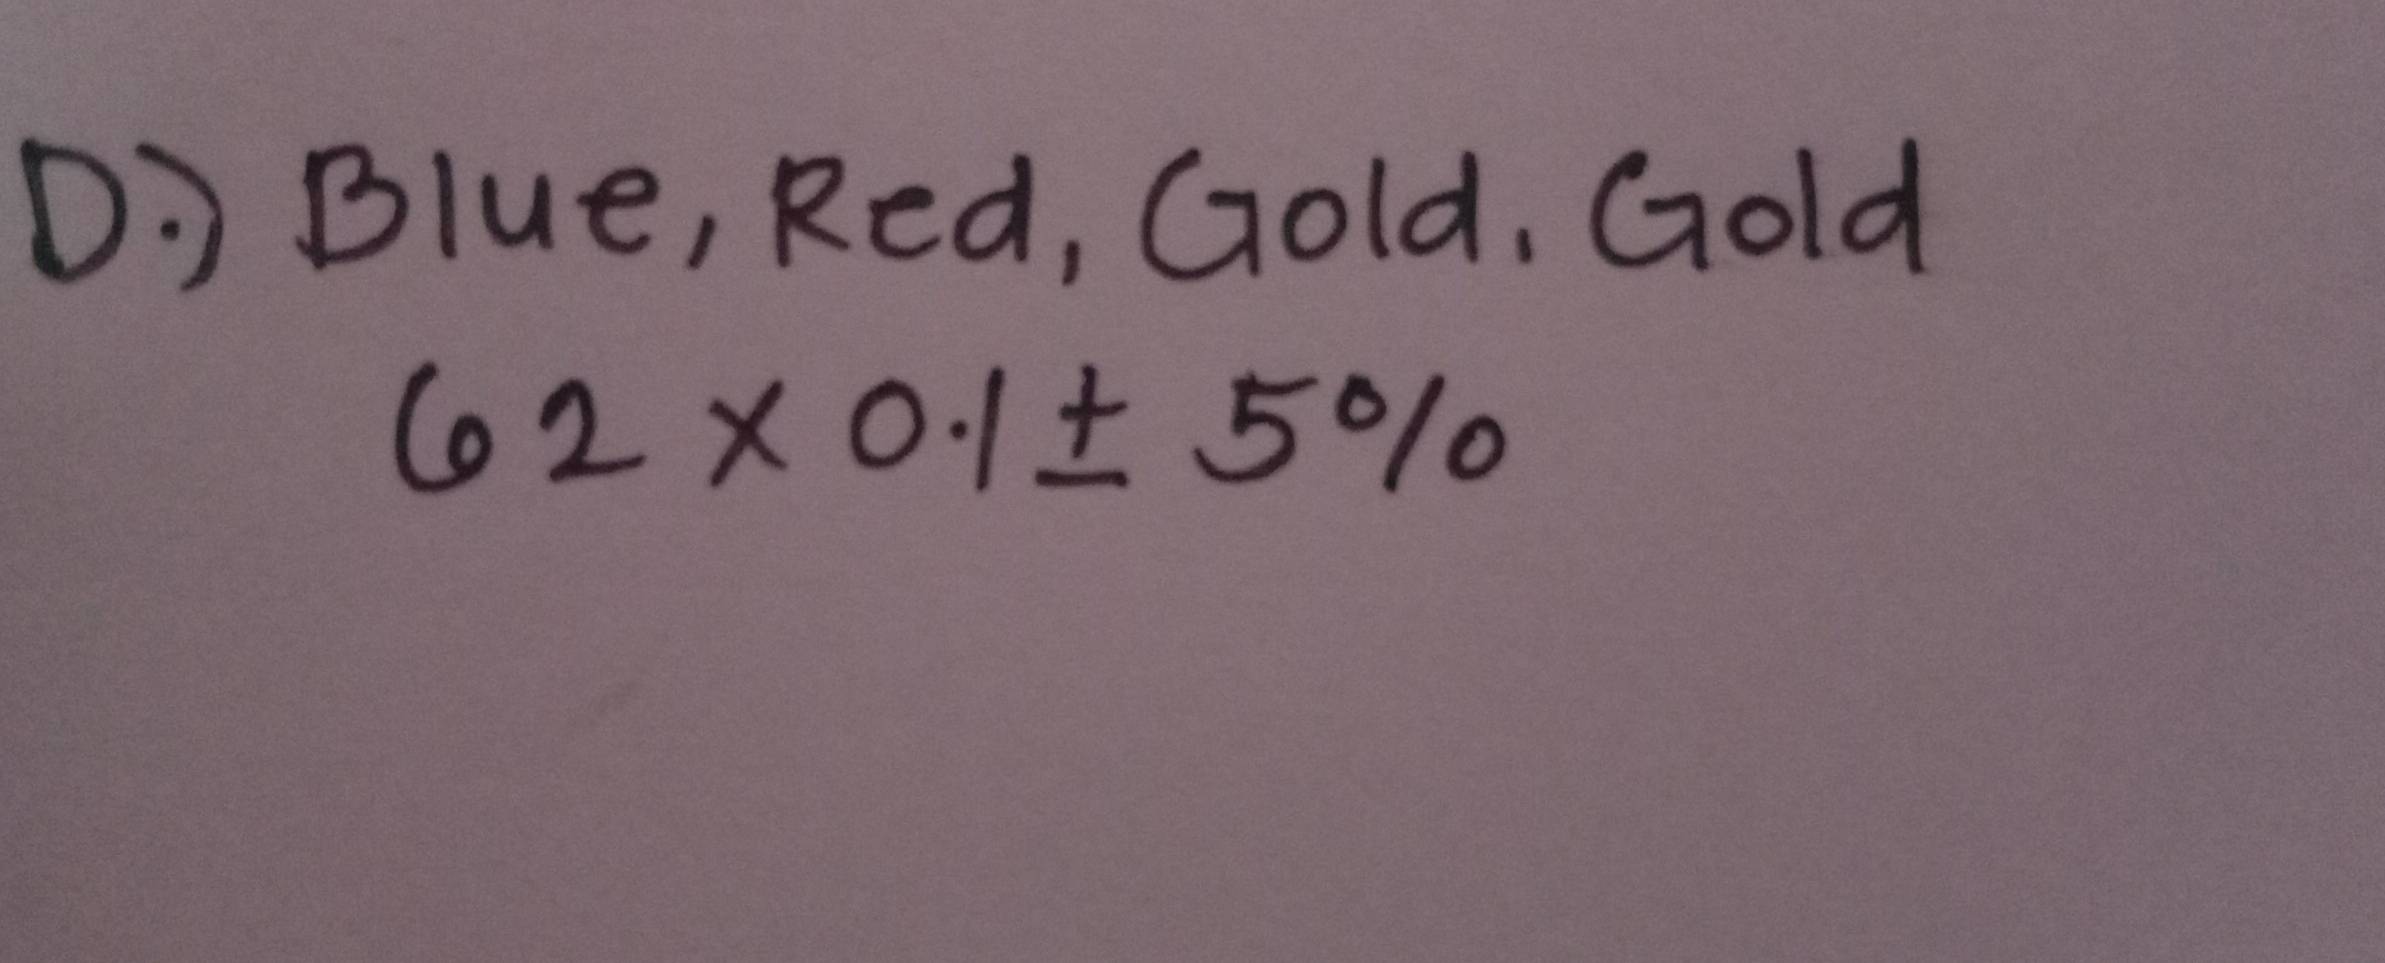 D.) Blue, Red, Gold, Gold
62 x 0.1 ± 5%